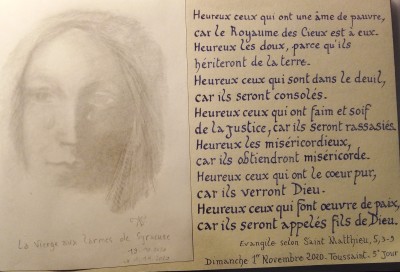 La Vierge aux larmes de Syracuse
Heureux ceux qui ont une âme de pauvre,
car le Royaume des Cieux est à eux.
Heureux les doux, parce qu'ils
hériteront de la terre.
Heureux ceux qui sont dans le deuil,
car ils seront consolés.
Heureux ceux qui ont faim et soif
de la justice, car ils seront rassasiés.
Heureux les miséricordieux,
car ils obtiendront miséricorde.
Heureux ceux qui ont le cœur pur,
car ils verront Dieu.
Heureux ceux qui font œuvre de paix,
car ils seront appelés fils de Dieu.
Evangile selon Saint Matthieu, 5, 3-9
Dimanche 1er Novembre 2020. Toussaint. 3e Jour